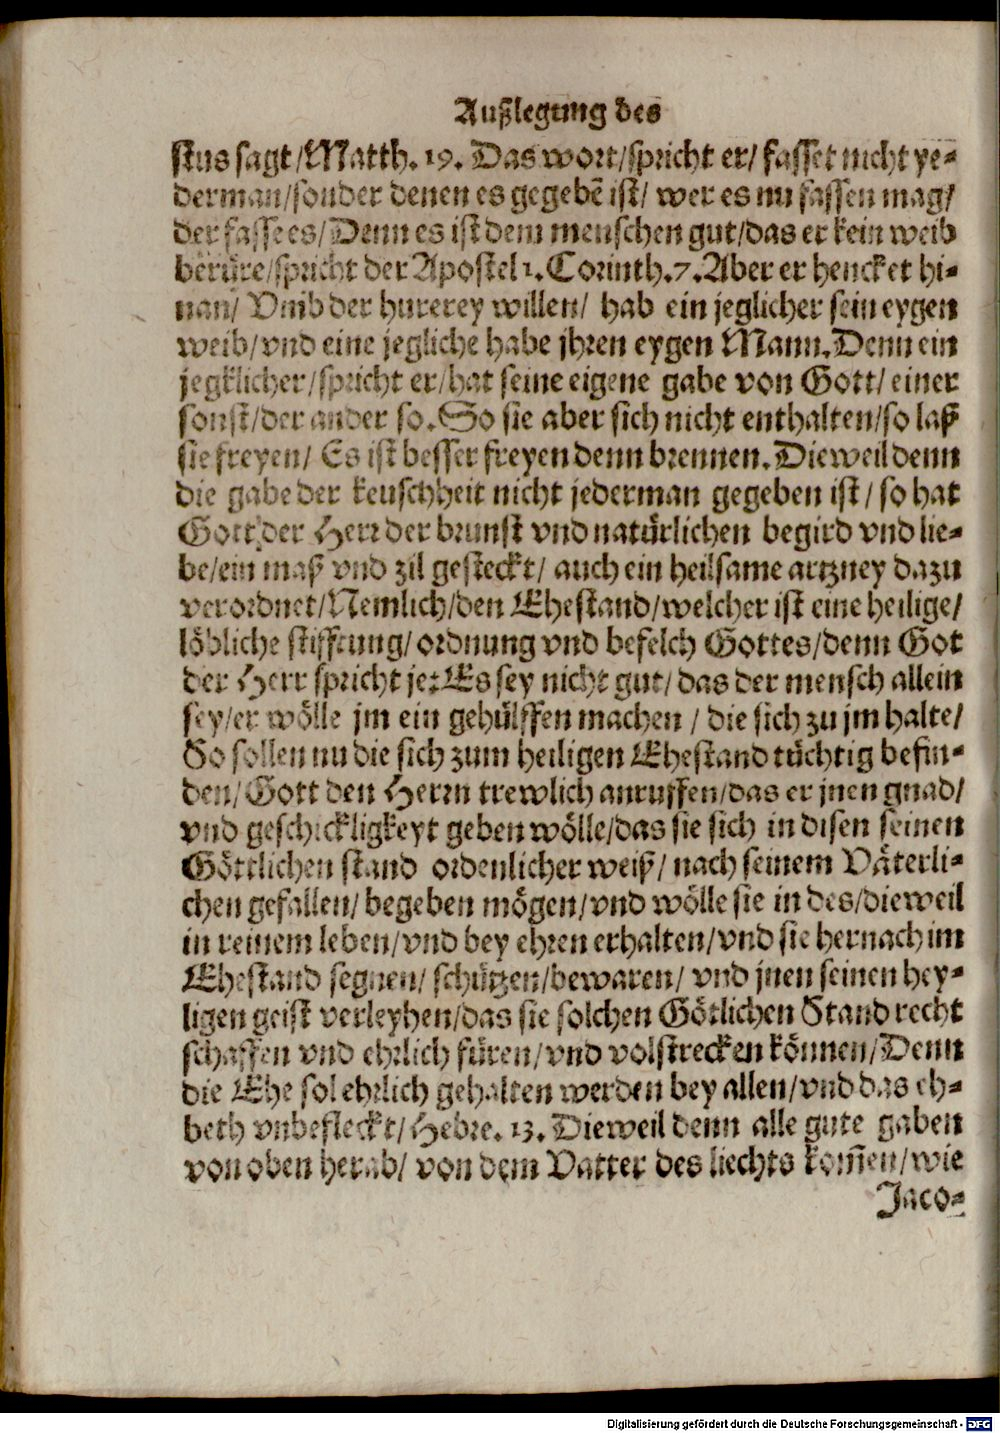 Außlegung des
stus sagt/Matth. 19. Das wort/spricht er/ fasset nicht ye-
derman/sonder denen es gegebẽ ist/ wer es nu fassen mag/
der fasse es/ Denn es ist dem menschen gut/das er kein weib
berüre/spricht der Apostel 1. Corinth. 7. Aber er hencket hi-
nan/ Vmb der hurerey willen/ hab ein jeglicher sein eygen
weib/vnd eine jegliche habe jhren eygen Mann. Denn ein
jegklicher/spricht er/hat seine eigene gabe von Gott/ einer
sonst/der ander so. So sie aber sich nicht enthalten/so laß
sie freyen/ Es ist besser freyen denn brennen. Dieweil denn
die gabe der keuschheit nicht jederman gegeben ist/ so hat
Gott der Herr der brunst vnd natürlichen begird vnd lie-
be/ein maß vnd zil gesteckt/ auch ein heilsame artzney dazu
verordnet/Nemlich/den Ehestand/welcher ist eine heilige/
löbliche stifftung/ ordnung vnd befelch Gottes/denn Got
der Herr spricht je: Es sey nicht gut/ das der mensch allein
sey/er wölle jm ein gehülffen machen / die sich zu jm halte/
So sollen nu die sich zum heiligen Ehestand tüchtig befin-
den/ Gott den Herrn trewlich anruffen/das er jnen gnad/
vnd geschickligkeyt geben wölle/das sie sich in disen seinen
Göttlichen stand ordenlicher weiß/ nach seinem Väterli-
chen gefallen/ begeben mögen/vnd wölle sie in des/dieweil
in reinem leben/vnd bey ehren erhalten/vnd sie hernach im
Ehestand segnen/ schützen/bewaren/ vnd jnen seinen hey-
ligen geist verleyhen/das sie solchen Götlichen Stand recht
schaffen vnd ehrlich füren/vnd volstrecken können/Denn
die Ehe sol ehrlich gehalten werden bey allen/vnd das eh-
beth vnbefleckt/ Hebre. 13. Dieweil denn alle gute gaben
von oben herab/ von dem Vatter des liechts kom̃en/wie
Jaco-
Digitalisierung gefördert durch die Deutsche Forschungsgemeinschaft - DFG